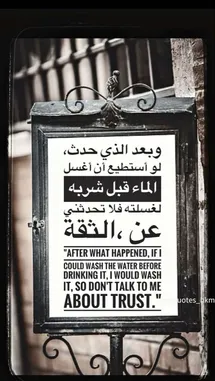 وبعد الذي حدث،
لو أستطيع أن أغسل
الماء قبل شربه
لغسلته فلا تحدثني
عن ،الثقة
"AFTER WHAT HAPPENED, IF I
COULD WASH THE WATER BEFORE
DRINKING IT, I WOULD WASH
IT, SO DON'T TALK TO ME
ABOUT TRUST."